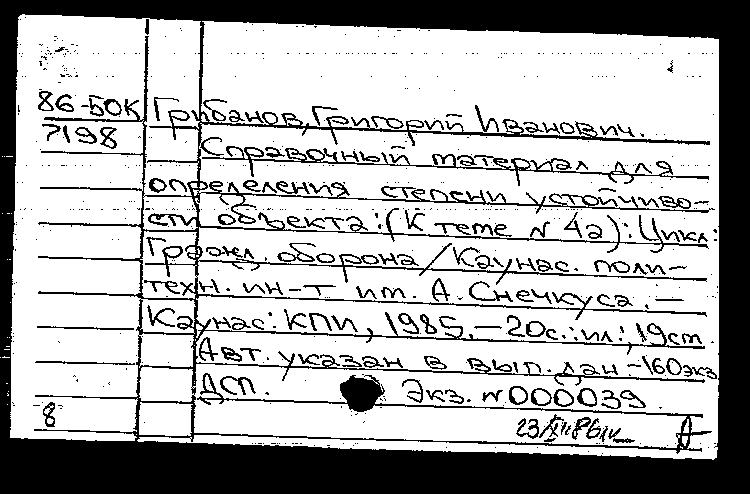 86-50К Грибанов, Григорий Иванович.
7198 Справочный материал для
определения степени устойчиво-
сти объекта: (К теме N 4а): Цикл:
Гражд. оборона/Каунас. поли-
техн. ин-т им. А. Снечкуса. —
Каунас: КПИ, 1985. — 20с.: ил.; 19см.
Авт. указан в вып. дан - 160экз
ДСП. Экз. N 000039
8